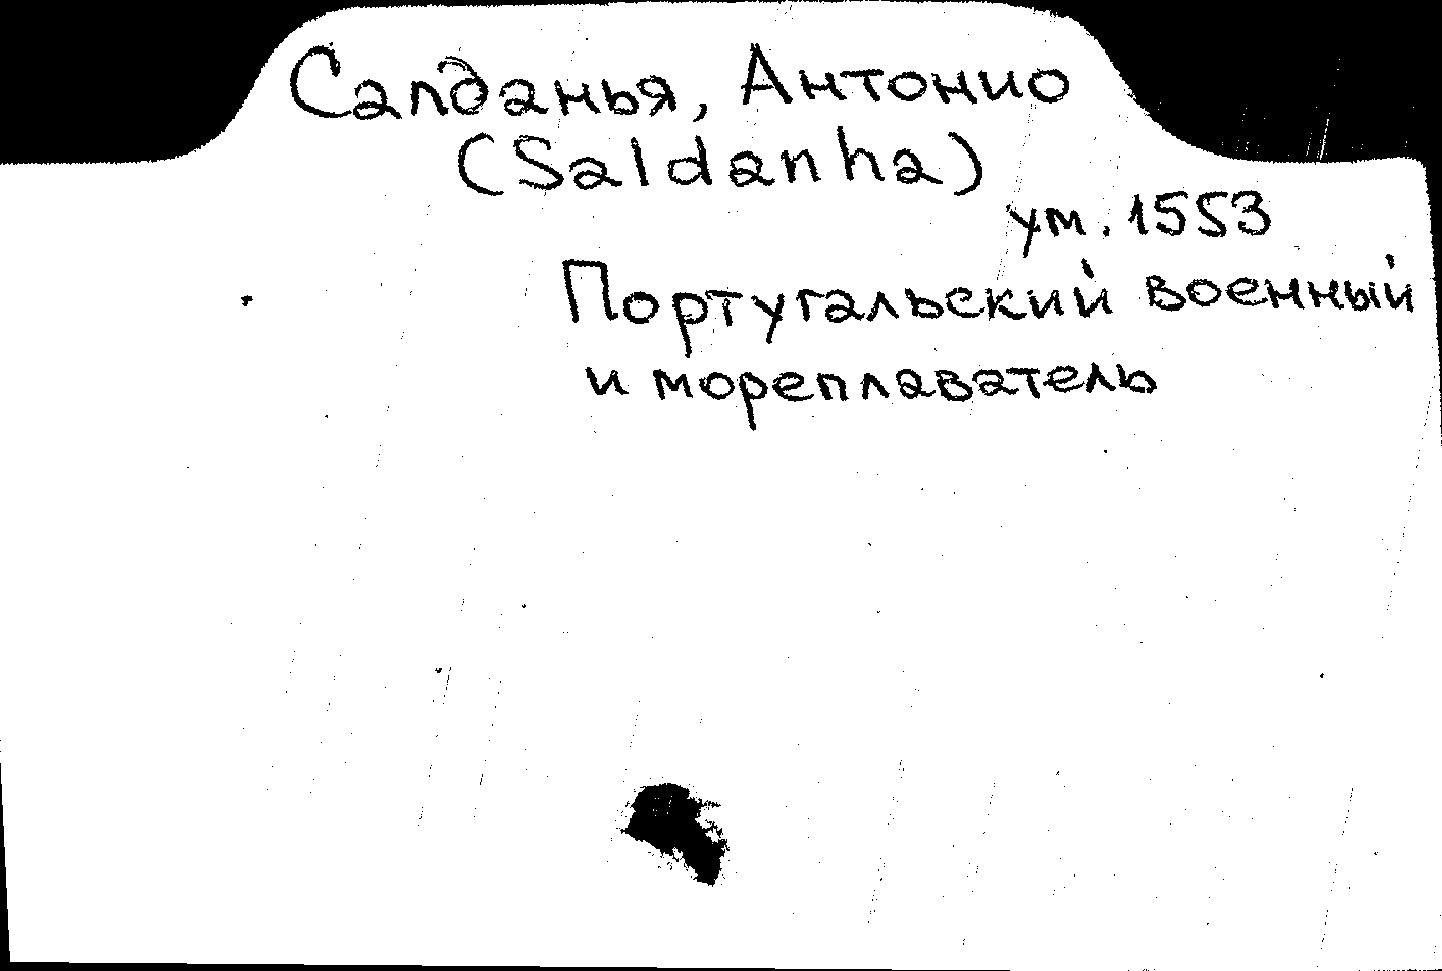 Салданья, Антонио
(Saldanha)
ум. 1553
Португальский военный
и мореплаватель